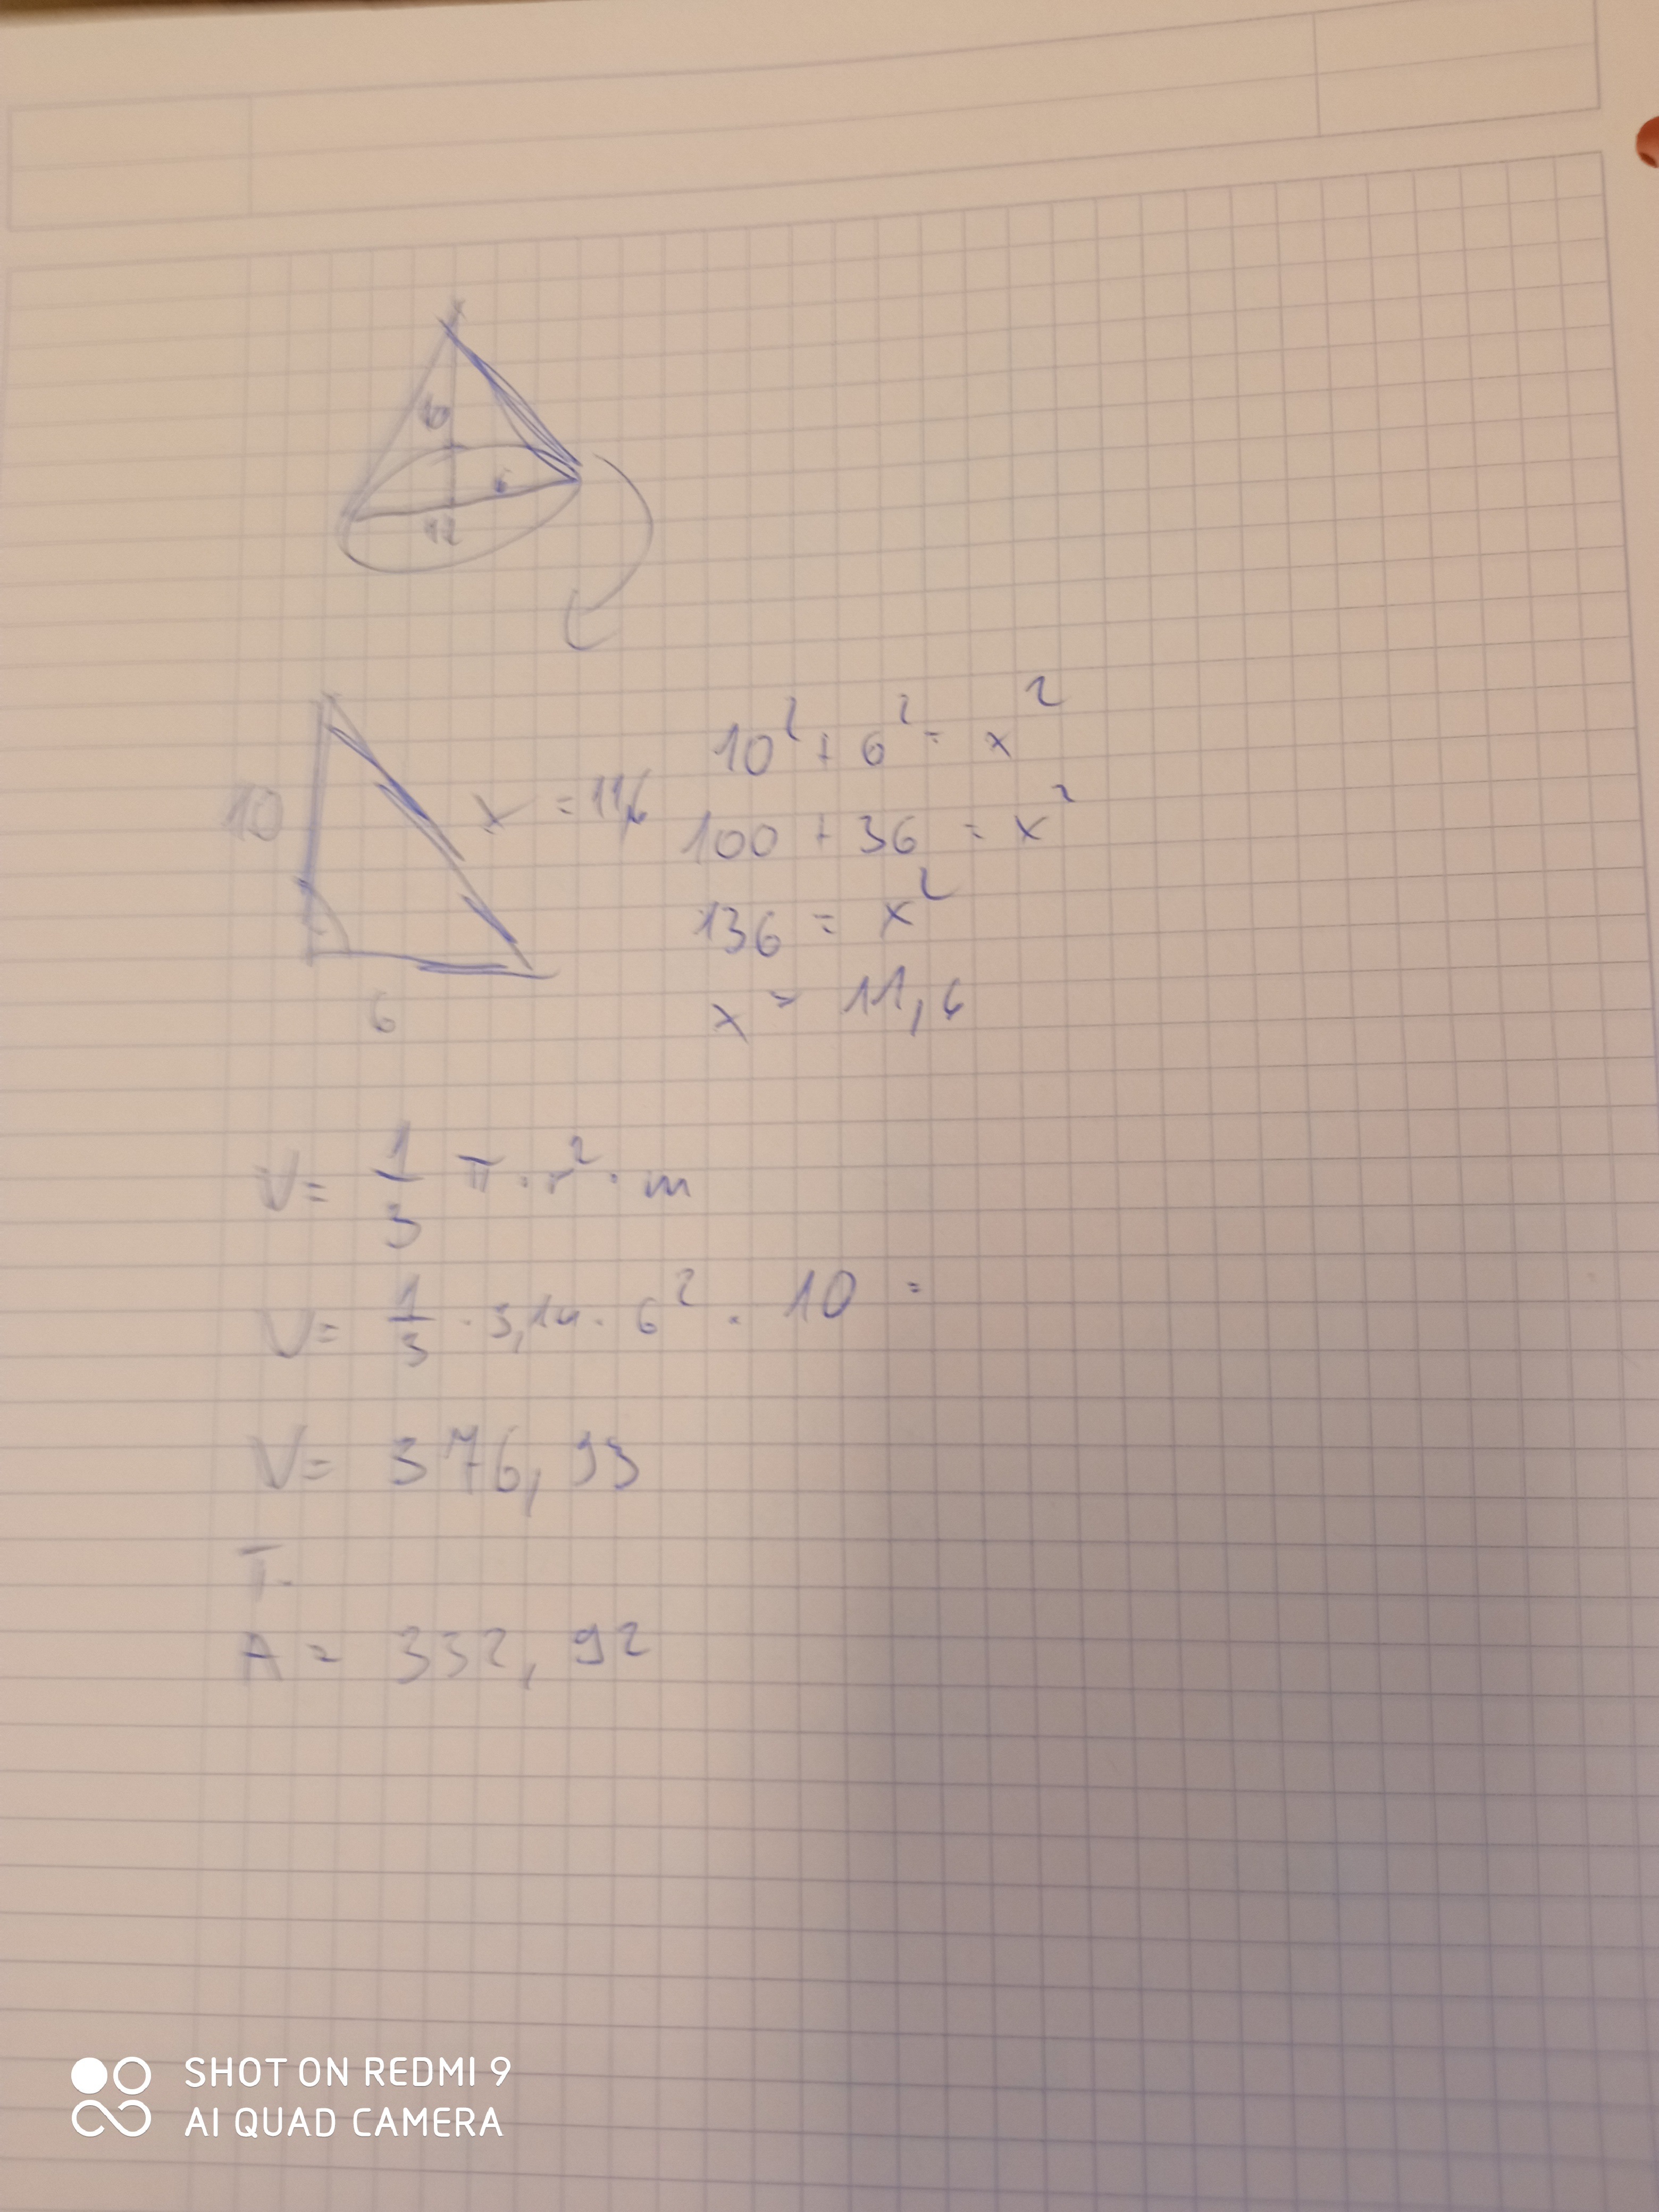 10
6
12
10² + 6² = x²
10
x = 11,6
100 + 36 = x²
136 = x²
6
x = 11,6
V = 1/3 π · r² · m
V = 1/3 · 3,14 · 6² · 10 =
V = 376,93
T.
A = 332,92
SHOT ON REDMI 9
AI QUAD CAMERA